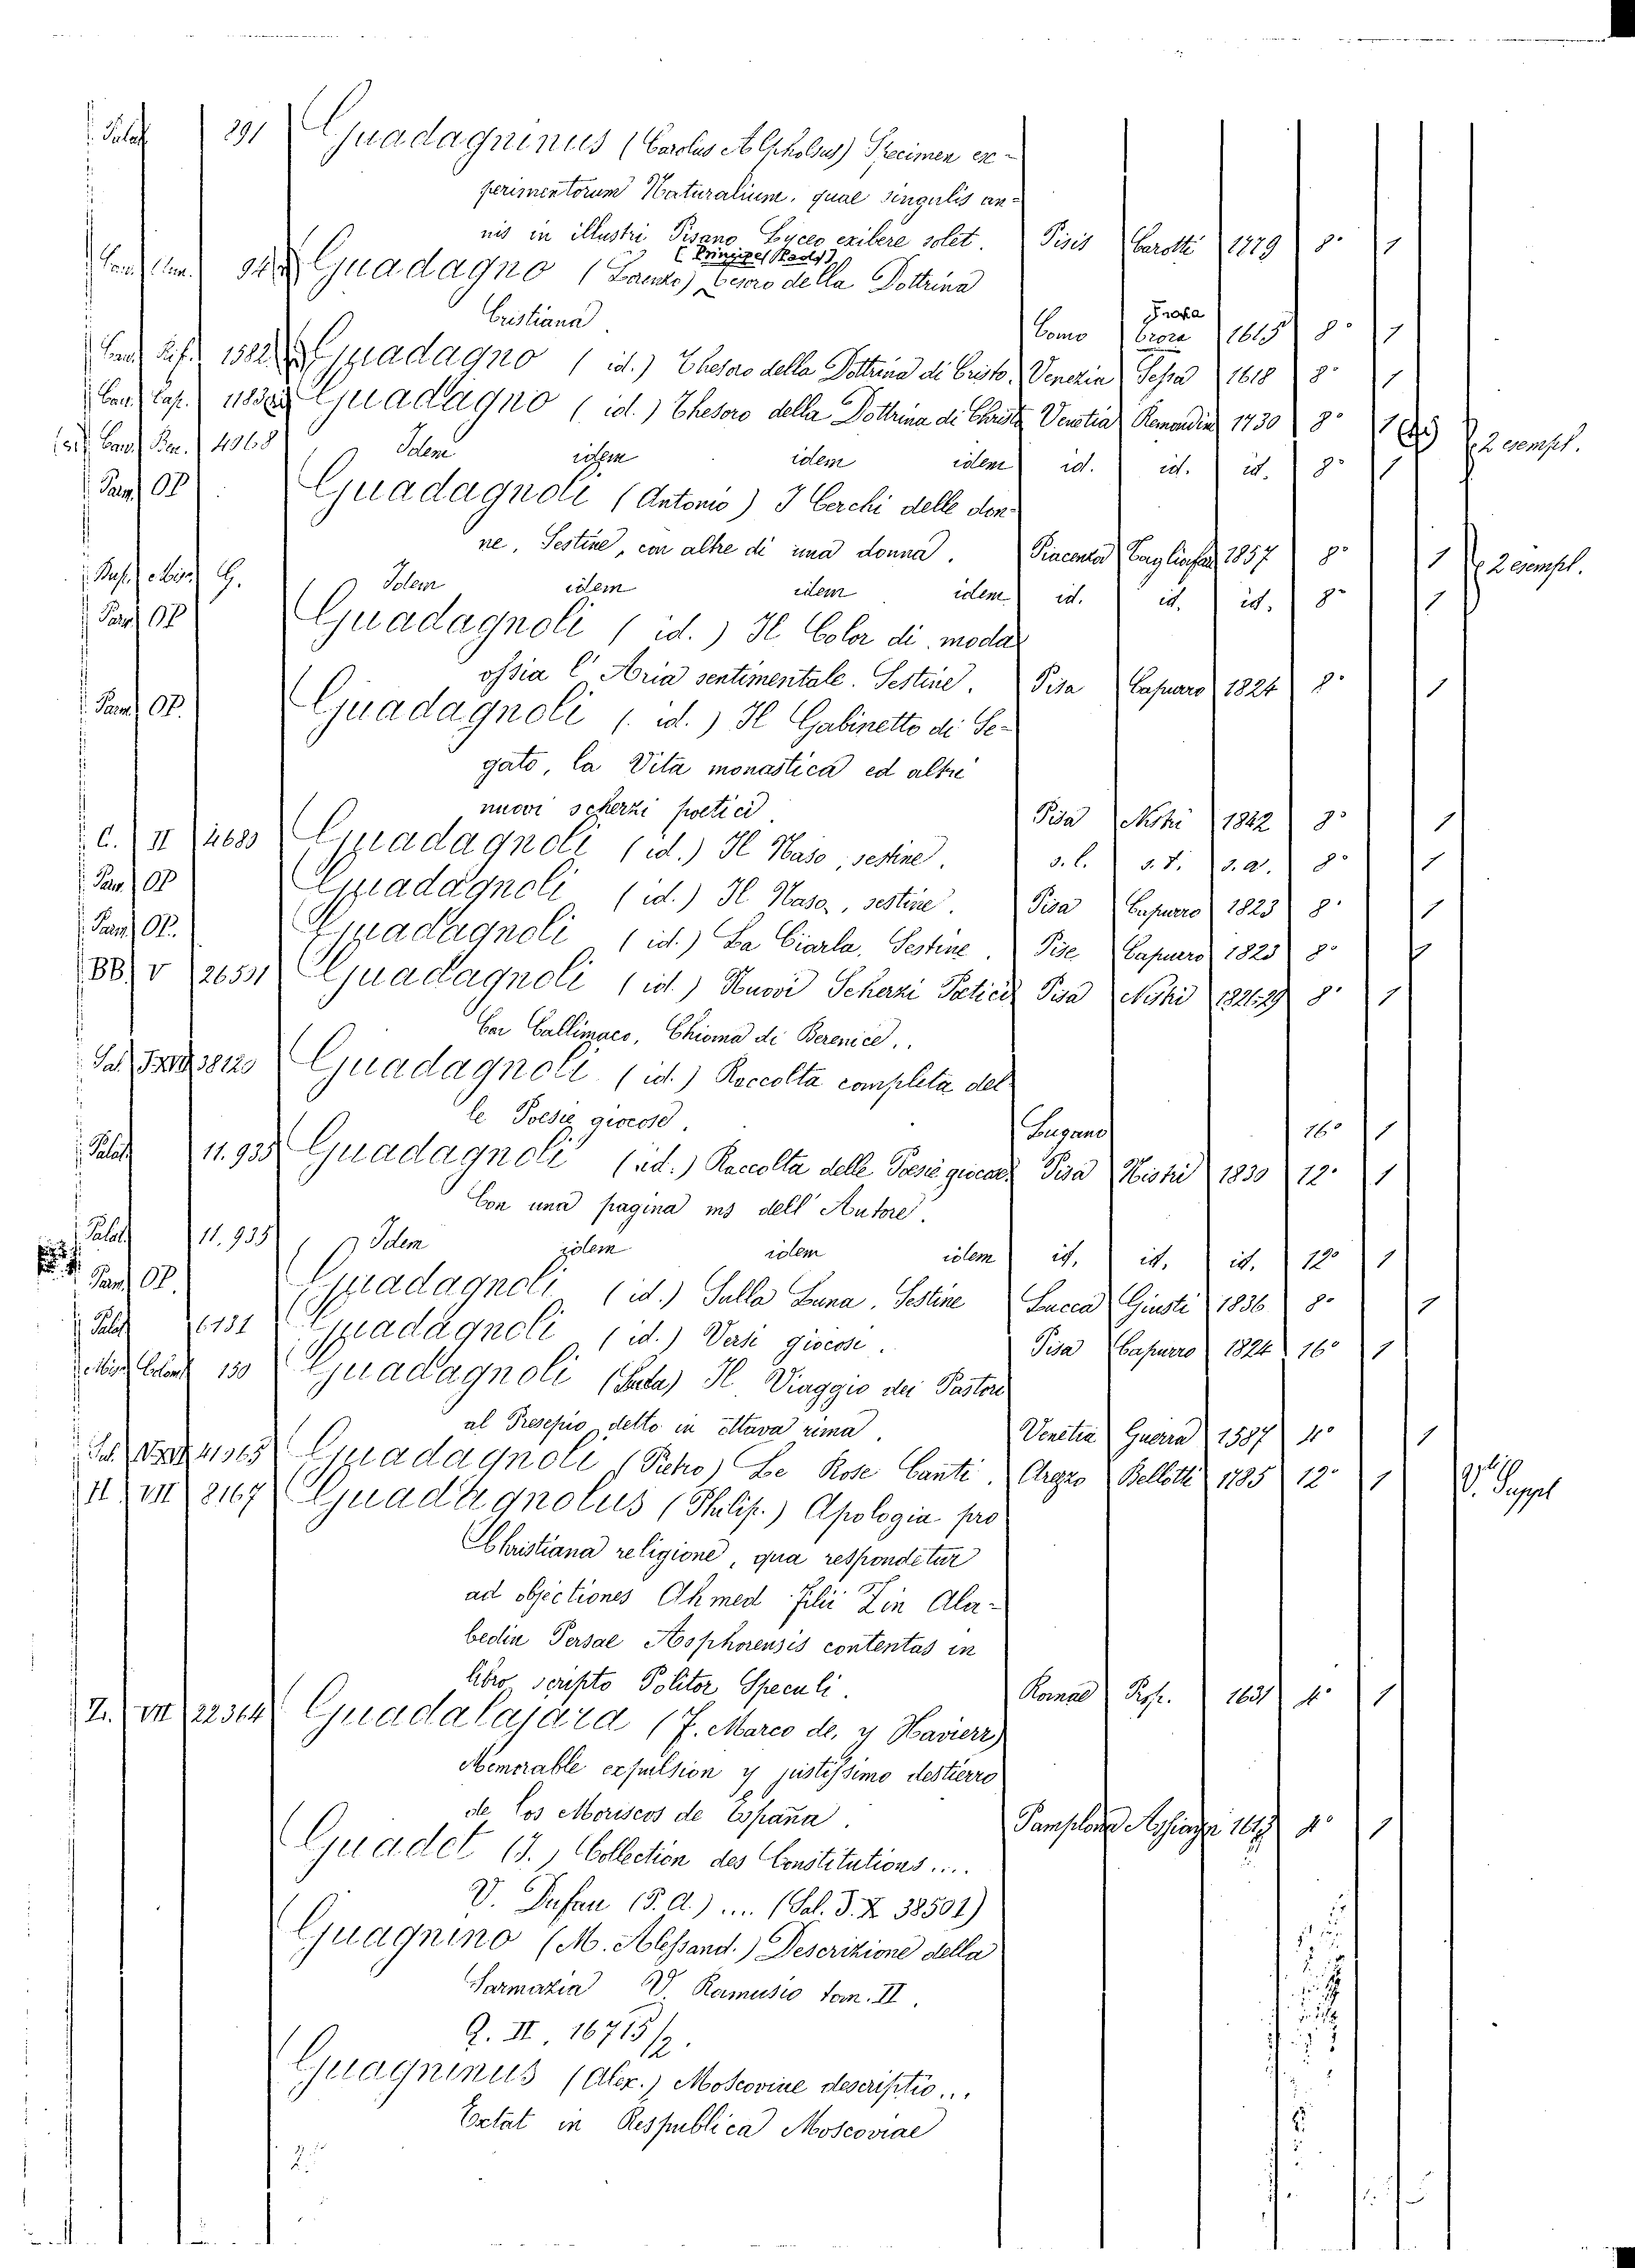 Palat. 291 Guadagninus (Carolus Alphonsus) Specimen ex-
perimentorum Naturalium, quae singulis an-
nis in illustri Pisano Lyceo exibere solet. Pisis Carotti 1779 8° 1
Guadagno (Lorenzo) Tesoro della Dottrina
Cristiana. Como Frova 1615 8° 1
1582 Guadagno (id.) Thesoro della Dottrina di Cristo. Venezia Sessa 1618 8° 1
Guadagno (id.) Thesoro della Dottrina di Christo Venetia Remondini 1730 8° 1
4968 Idem idem idem idem id. id. id. 8° 1 2 esempl.
OP Guadagnoli (Antonio) I Cerchi delle don-
ne, Sestine, con altre di una donna. Piacenza 1857 8° 1 2 esempl.
G. Idem idem idem idem id. id. id. 8° 1
OP Guadagnoli (id.) Il Color di moda
ossia l'Aria sentimentale. Sestine. Pisa Capurro 1824 8° 1
OP. Guadagnoli (id.) Il Gabinetto di Se-
gato, la Vita monastica ed altri
nuovi scherzi poetici. Pisa Nistri 1842 8° 1
C. II 4683 Guadagnoli (id.) Il Naso, sestine. s. l. s. t. s. a. 8° 1
OP Guadagnoli (id.) Il Naso, sestine. Pisa Capurro 1823 8° 1
OP. Guadagnoli (id.) La Ciarla, Sestine. Pisa Capurro 1823 8° 1
BB. V 26531 Guadagnoli (id.) Nuovi Scherzi Poetici Pisa Nistri 8° 1
Con Callimaco, Chioma di Berenice..
Sal. 38120 Guadagnoli (id.) Raccolta completa del-
le Poesie giocose. Lugano 16° 1
Palat. 11.935 Guadagnoli (id.) Raccolta delle Poesie giocose Pisa Nistri 1830 12° 1
Con una pagina ms dell'Autore.
Palat. 11.935 Idem idem idem idem id. id. id. 12° 1
OP. Guadagnoli (id.) Sulla Luna. Sestine Lucca Giusti 1836 8° 1
Palat. 6131 Guadagnoli (id.) Versi giocosi. Pisa Capurro 1824 16° 1
130 Guadagnoli Il Viaggio dei Pastori
al Presepio detto in ottava rima. Venetia Guerra 1587 4° 1
Guadagnoli (Pietro) Le Rose Canti. Arezzo Bellotti 1785 12° 1
II VII 8167 Guadagnolus (Philip.) Apologia pro V. Suppl
Christiana religione, qua respondetur
ad objectiones Ahmed filii Zin Ala-
bedin Persae Asphorensis contentas in
libro scripto Politor Speculi. Romae 1631 4° 1
Z. VII 22364 Guadalajara (F. Marco de, y Havierr)
Memorable expulsion y justissimo destierro
de los Moriscos de España. Pamplona 4° 1
Guadet (J.) Collection des Constitutions....
V. Dufau (P. A.) .... (Sal. I. X 38501)
Guagnino (M. Alessand.) Descrizione della
Sarmazia V. Ramusio tom. II.
Q. II. 16715/2.
Guagninus (Alex.) Moscoviae descriptio...
Extat in Respublica Moscoviae